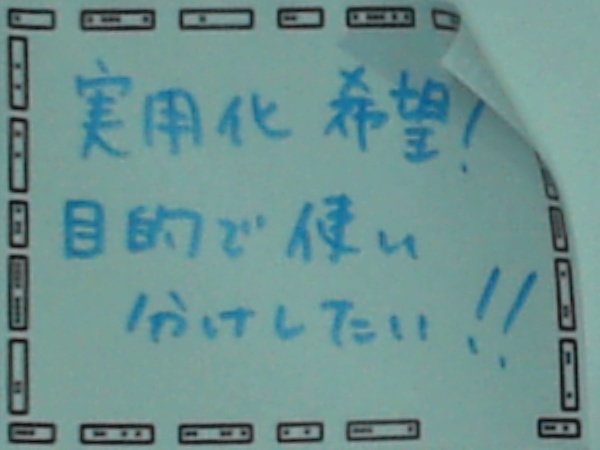 実用化 希望!
目的で使い
分けしたい!!